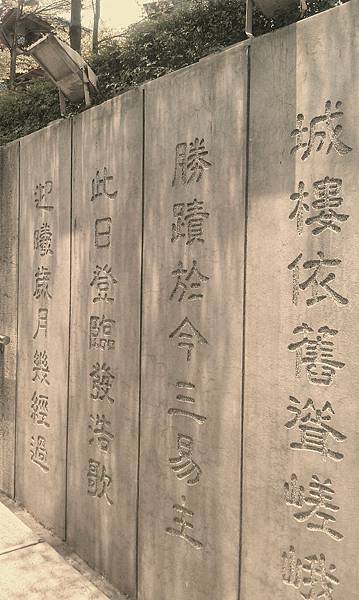 城樓依舊聳嵯峨
勝蹟於今三易主
此日登臨發浩歌
迎曦歲月幾經過